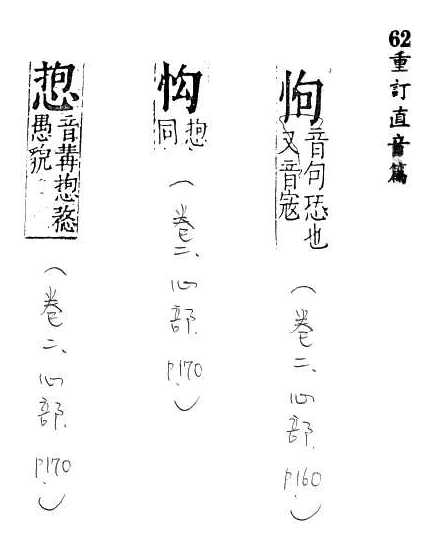 62重訂直音篇
怐
音句恐也
又音寇
(卷二、心部. p.160)
同
(卷二、心部. p.170)
音冓愗
愚貌
(卷二、心部. p.170)